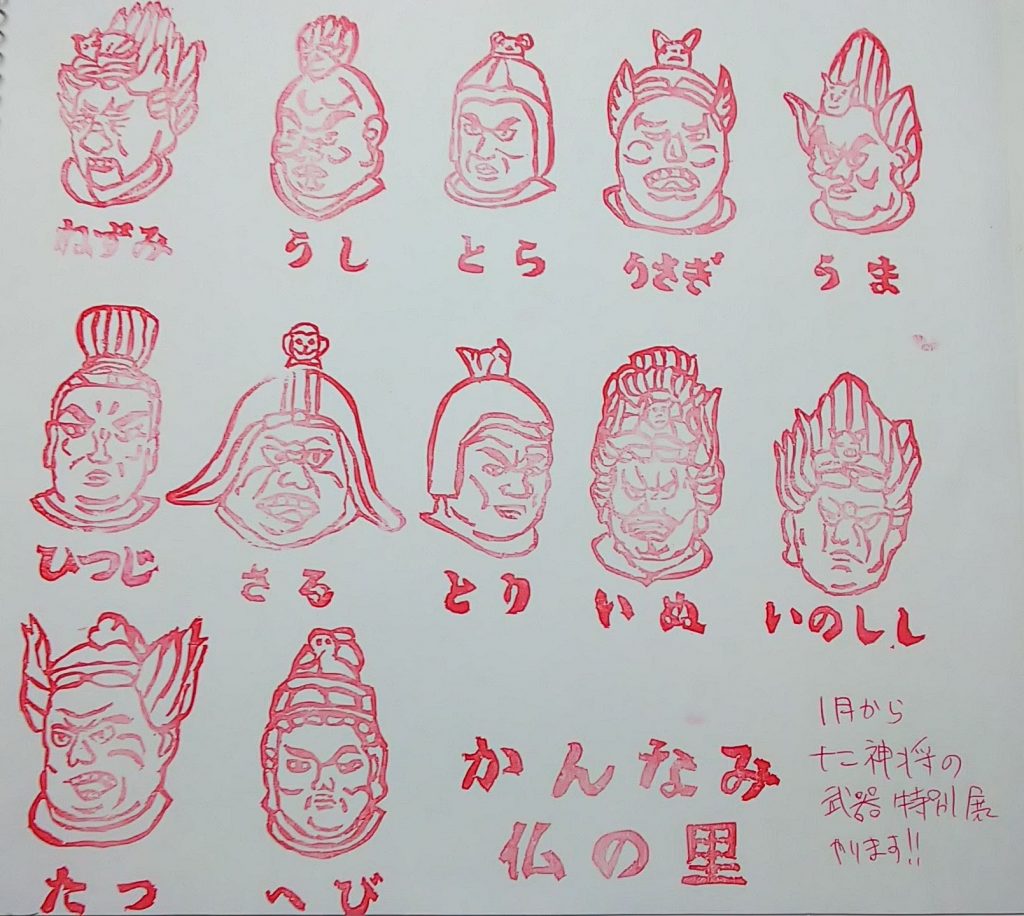 ねずみ うし とら うさぎ うま
ひつじ さる とり いぬ いのしし
たつ へび
かんなみ
仏の里
1月から
十二神将の
武器特別展
やります!!